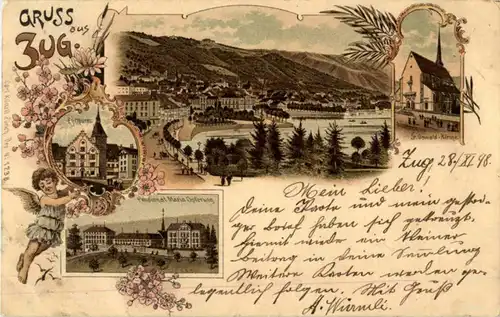 GRUSS aus
ZUG.
St. Oswald-Kirche
Pensionat Maria Opferung
Zug, 28/XI. 98
Mein Lieber.
Deine Karte und mein gestr-
iger brief haben sich gekreuzt.
Hiermit wieder ein kleiner
beitrag in deine Sammlung
Weitere Karten werden ge-
legentlich folgen. Mit Gruß
A. Wirmli.